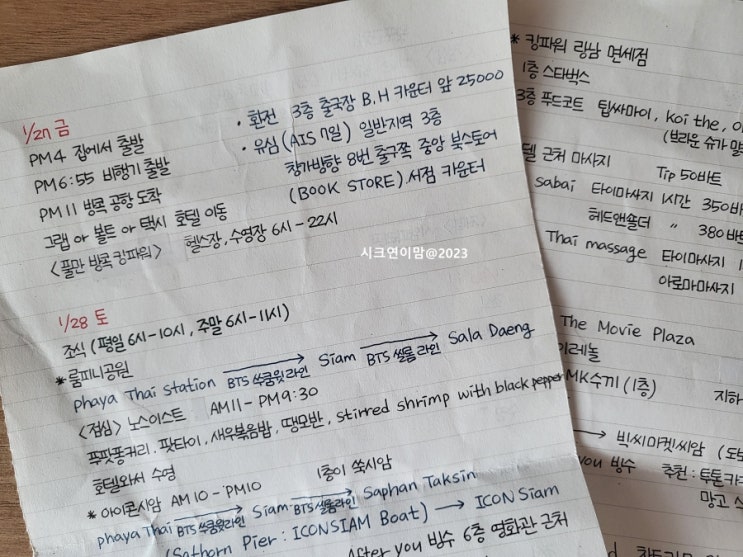 1/27 금
PM4 집에서 출발
PM6:55 비행기 출발
PM11 방콕 공항 도착
그랩 or 볼트 or 택시 호텔 이동
<풀만 방콕 킹파워> 헬스장, 수영장 6시-22시
• 환전 3층 출국장 B.H 카운터 앞 25000
• 유심(AIS 7일) 일반지역 3층
창가방향 8번 출구쪽 중앙 북스토어
(BOOK STORE) 서점 카운터
시크연이맘@2023
1/28 토
조식(평일 6시-10시, 주말 6시-11시)
* 룸피니공원
phaya Thai station BTS 쑤쿰윗라인 Siam BTS 씰롬 라인 Sala Daeng
<점심> 노스이스트 AM11-PM9:30
푸팟퐁커리, 팟타이, 새우볶음밥, 땡모반, stirred shrimp with black pepper
호텔와서 수영 1층이 쑥시암
* 아이콘시암 AM10-PM10
phaya Thai BTS쑤쿰윗라인 Siam BTS씰롬라인 Saphan Taksin
(Sathorn Pier : ICONSIAM Boat) → ICON Siam
After you 빙수 6층 영화관 근처
* 킹파워 랑남 면세점
1층 스타벅스
3층 푸드코트 팁싸마이, Koi the,
(브라운 슈가
근처 마사지 Tip 50바트
sabai 타이마사지 1시간 350바
헤드앤숄더 〃 380바
Thai massage 타이마사지
아로마마사지
The Movie Plaza
MK수끼(1층) 지하
→ 빅씨마켓씨암
you 빙수 추천:
망고